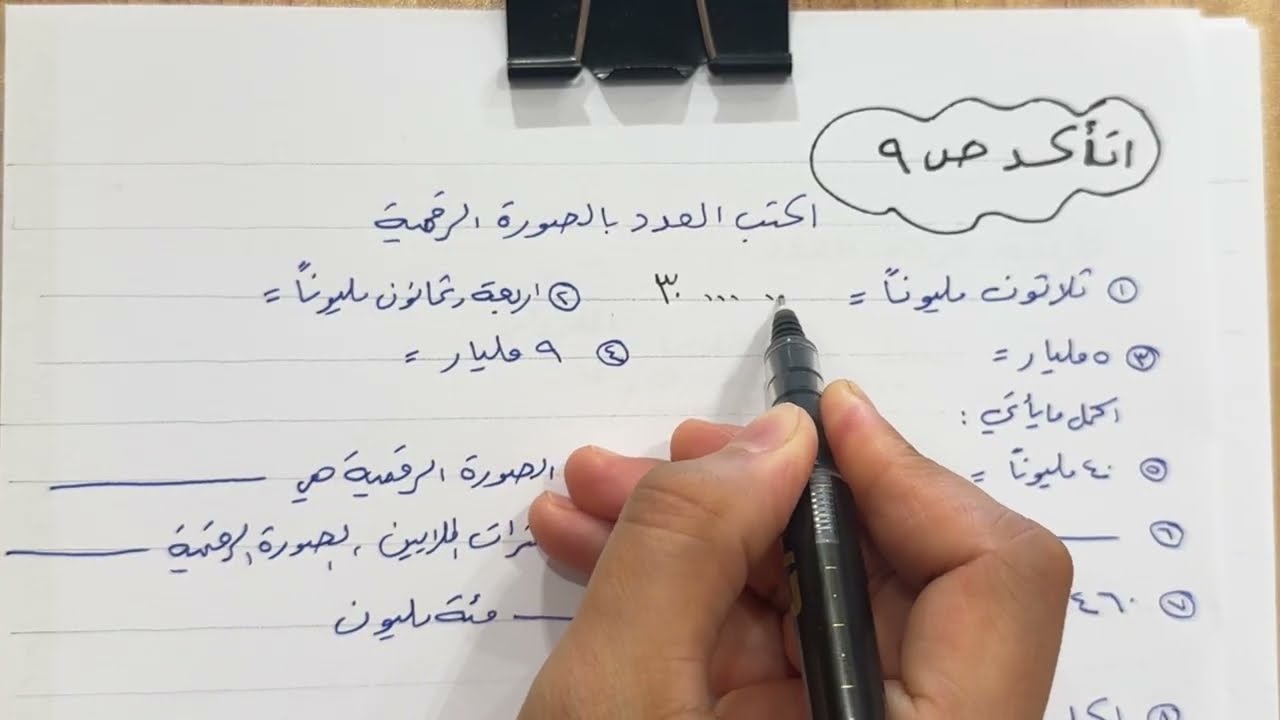 اتأكد ص ٩
اكتب العدد بالصورة الرقمية
① ثلاثون مليوناً = ٣٠ ٠٠٠ ٠٠ ② اربعة وثمانون مليوناً =
③ ٥ مليار = ④ ٩ مليار =
اكمل ما يأتي :
⑤ ٤٠ مليوناً = الصورة الرقمية هي ______
⑥ ______ الملايين ، لصورة الرقمية ______
⑦ ٤٦٠ ______ مئة مليون
⑧